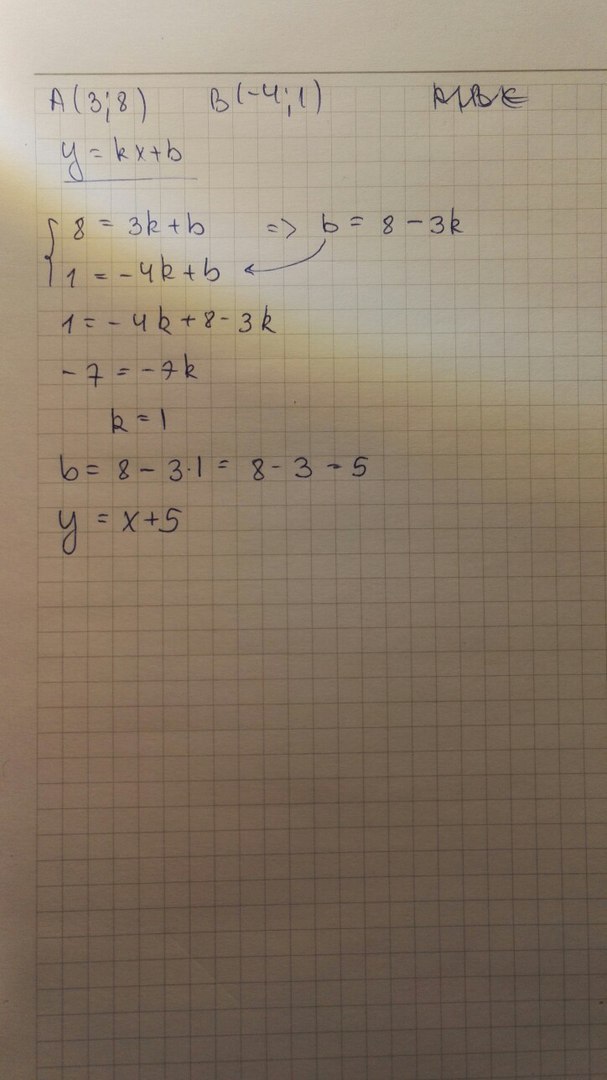 A(3;8) B(-4;1)
y = kx+b
8 = 3k+b => b = 8-3k
1 = -4k+b
1 = -4k+8-3k
-7 = -7k
k = 1
b = 8-3·1 = 8-3-5
y = x+5